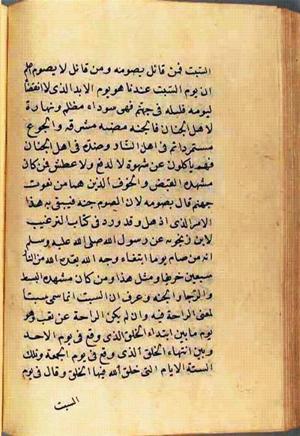 السبت فمن قائل بصومه ومن قائل لا يصوم اعلم
ان يوم السبت عندنا هو يوم الابد الذى لا انقضا
ليومه فليله فى جهنم فهى سوداء مظلمه ونهاره
لاهل الجنان فالجنه مضيئه مشرقه والجوع
مستمر دائم فى اهل النار وضده فى اهل الجنان
فهم ياكلون عن شهوة لا لدفع ولا عطش فمن كان
مشهده القبض والخوف الذين هما من نعوت
جهنم قال بصومه لان الصوم جنه فيتقى به هذا
الامر الذى اذهله وقد ورد فى كتاب الترغيب
لابن زنجويه عن رسول الله صلى الله عليه وسلم
انه من صام يوما ابتغاء وجه الله بعده الله من النار
سبعين خريفا ومثل هذا ومن كان مشهده البسط
والرجا والجنه وعرف ان السبت انما سمى سبتا
لمعنى الراحة فيه وان لم يكن الراحة عن تعب وهو
يوم ما بين ابتداء الخلق الذى وقع فى يوم الاحد
وبين انتهاء الخلق الذى وقع فى يوم الجمعة وتلك
الستة الايام التى خلق الله فيها الخلق وقال فى يوم
السبت